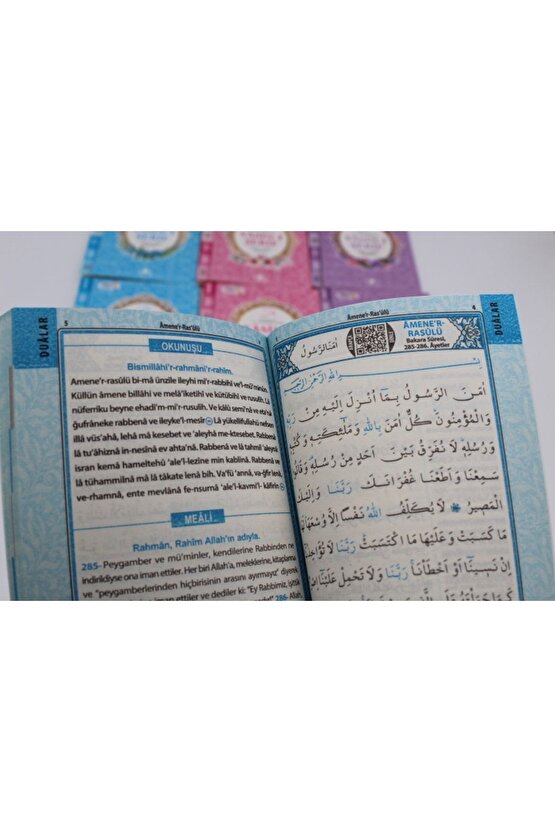 DUÂLAR
5
Âmene'r-Rasûlü
OKUNUŞU
Bismillâhi'r-rahmâni'r-rahîm.
Amene'r-rasûlü bi-mâ ünzile ileyhi mi'r-rabbihî ve'l-mü'minûn.
Küllün âmene billâhi ve melâ'iketihî ve kütübihî ve rusulih. Lâ
nüferriku beyne ehadi'm-mi'r-rusulih. Ve kâlû semi'nâ ve eta'nâ
ğufrâneke rabbenâ ve ileyke'l-mesîr
Lâ yükellifullahü nefsen
illâ vüs'ahâ, lehâ mâ kesebet ve 'aleyhâ me-ktesebet. Rabbenâ
lâ tu'âhiznâ in-nesînâ ev ahta'nâ. Rabbenâ ve lâ tahmil 'aleynâ
isran kemâ hameltehû 'ale'l-lezîne min kablinâ. Rabbenâ ve lâ
tühammilnâ mâ lâ tâkate lenâ bih. Va'fü 'annâ, va-ğfir lenâ,
ve-rhamnâ, ente mevlânâ fe-nsurnâ 'ale'l-kavmi'l- kâfirîn
MEÂLİ
Rahmân, Rahîm Allah'ın adıyla.
285- Peygamber ve mü'minler, kendilerine Rabbinden ne
indirildiyse ona iman ettiler. Her biri Allah'a, meleklerine, kitaplarına
ve "peygamberlerinden hiçbirisinin arasını ayırmayız" diyerek
iman ettiler ve dediler ki: "Ey Rabbimiz, işittik
286- Allah,
Âmene'r-Rasûlü
4
DUÂLAR
اٰمَنَ الرَّسُولُ
ÂMENE'R-
RASÛLÜ
Bakara Sûresi,
285-286. Âyetler
بِسْمِ اللّٰهِ الرَّحْمٰنِ الرَّحِيمِ
اٰمَنَ الرَّسُولُ بِمَٓا اُنْزِلَ اِلَيْهِ مِنْ رَبِّهِ
وَالْمُؤْمِنُونَ كُلٌّ اٰمَنَ بِاللّٰهِ وَمَلٰٓئِكَتِهِ وَكُتُبِهِ
وَرُسُلِهِ لَا نُفَرِّقُ بَيْنَ اَحَدٍ مِنْ رُسُلِهِ وَقَالُوا
سَمِعْنَا وَاَطَعْنَا غُفْرَانَكَ رَبَّنَا وَاِلَيْكَ
الْمَصِيرُ لَا يُكَلِّفُ اللّٰهُ نَفْسًا اِلَّا وُسْعَهَا لَهَا
مَا كَسَبَتْ وَعَلَيْهَا مَا اكْتَسَبَتْ رَبَّنَا لَا تُؤَاخِذْنَٓا
اِنْ نَسِينَٓا اَوْ اَخْطَأْنَا رَبَّنَا وَلَا تَحْمِلْ عَلَيْنَٓا اِصْرًا